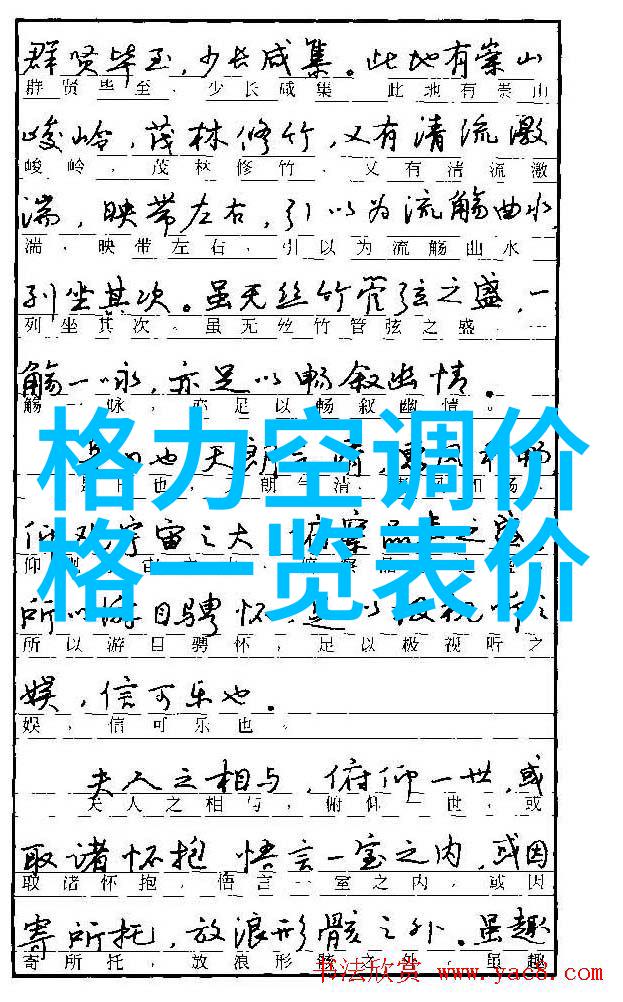 群贤毕至，少长咸集。此地有崇山
群贤毕至，少长咸集。此地有崇山
峻岭，茂林修竹，又有清流激
峻岭，茂林修竹，又有清流激
湍，映带左右，引以为流觞曲水，
湍，映带左右，引以为流觞曲水
列坐其次。虽无丝竹管弦之盛，一
列坐其次。虽无丝竹管弦之盛，一
觞一咏，亦足以畅叙幽情。
觞一咏，亦足以畅叙幽情。
格力空调价
格一览表价
也 天朗 畅
也，
仰观宇宙之大
仰
所以游目骋怀，足以极视听之
所以游目骋怀，足以极视听之
娱，信可乐也。
娱，信可乐也。
夫人之相与，俯仰一世，或
夫人之相与，俯仰一世，或
取诸怀抱 悟言一室之内，或因
取诸怀抱，悟言一室之内，或因
寄所托，放浪形骸之外。虽趣
寄所托，放浪形骸之外。虽趣
书法欣赏 www.yac8.com